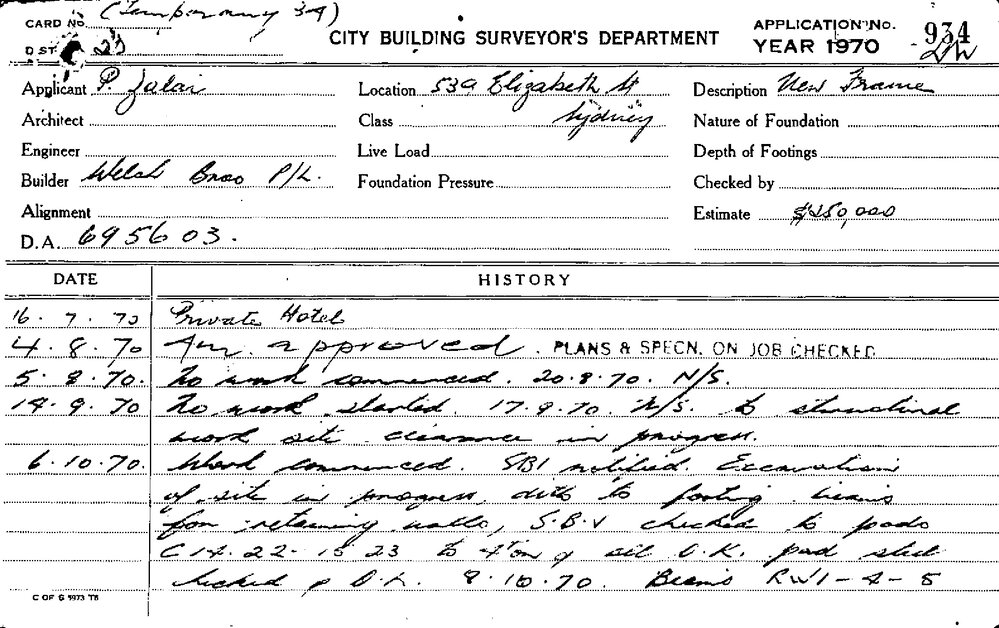 CARD No. (Temporary 34)
DIST. 23
CITY BUILDING SURVEYOR'S DEPARTMENT
APPLICATION No. 934
YEAR 1970
Applicant P. Jalai
Location 539 Elizabeth St
Description New Frame
Architect
Class Sydney
Nature of Foundation
Engineer
Live Load
Depth of Footings
Builder Welch Bros P/L.
Foundation Pressure
Checked by
Alignment
Estimate $250,000
D.A. 695603.
DATE HISTORY
16. 7. 70 Private Hotel
4. 8. 70 approved. PLANS & SPECN. ON JOB CHECKED
5. 8. 70. No work commenced. 20.8.70. N/S.
14. 9. 70 No work started. 17.9.70. N/S. to structural
work site clearance in progress.
6. 10. 70. Work commenced. SBI notified. Excavation
of site in progress, ditto to footing beams
for retaining walls, S.B.V checked to pads
C 14. 22- 15 23 to O.K. pad steel
checked O.K. 8.10.70. Beams RW1-4-5
C OF S 5973 TB